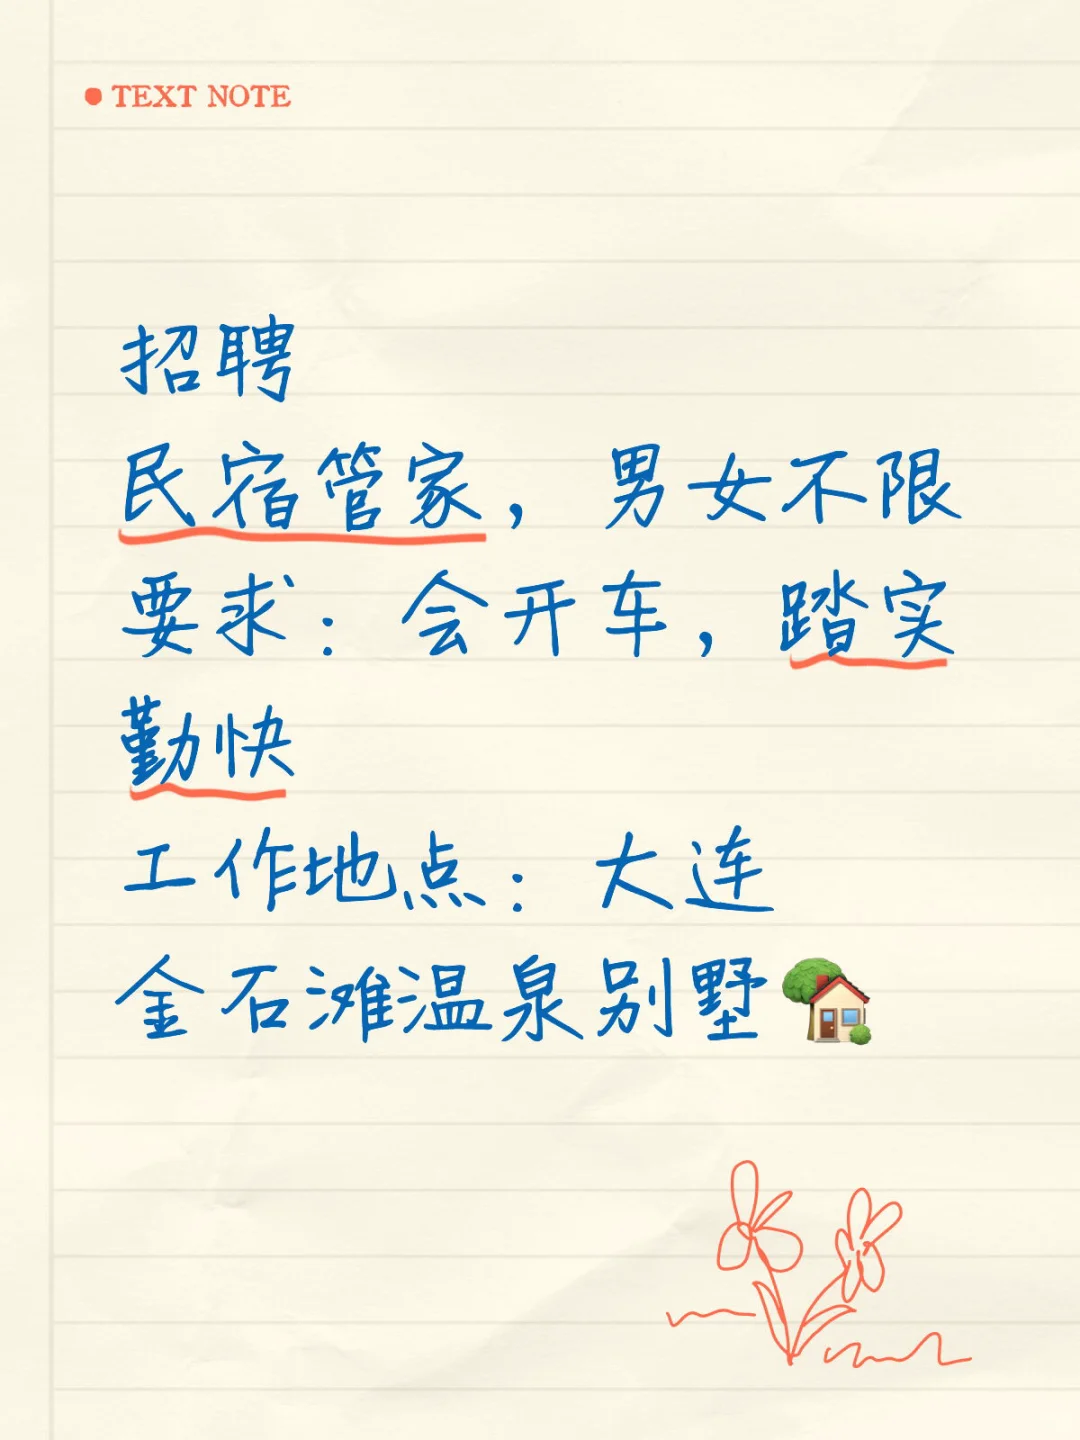 TEXT NOTE
招聘
民宿管家，男女不限
要求：会开车，踏实
勤快
工作地点：大连
金石滩温泉别墅